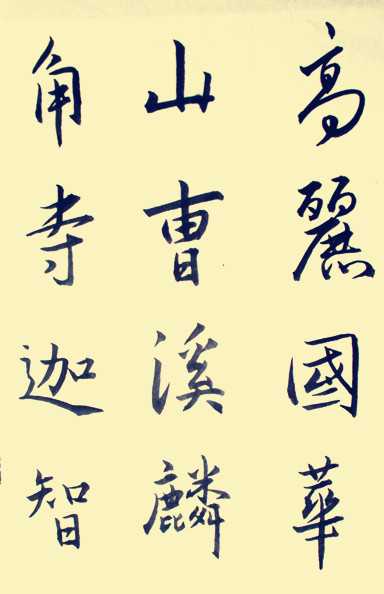 高麗國華
山曹溪麟
角寺迦智